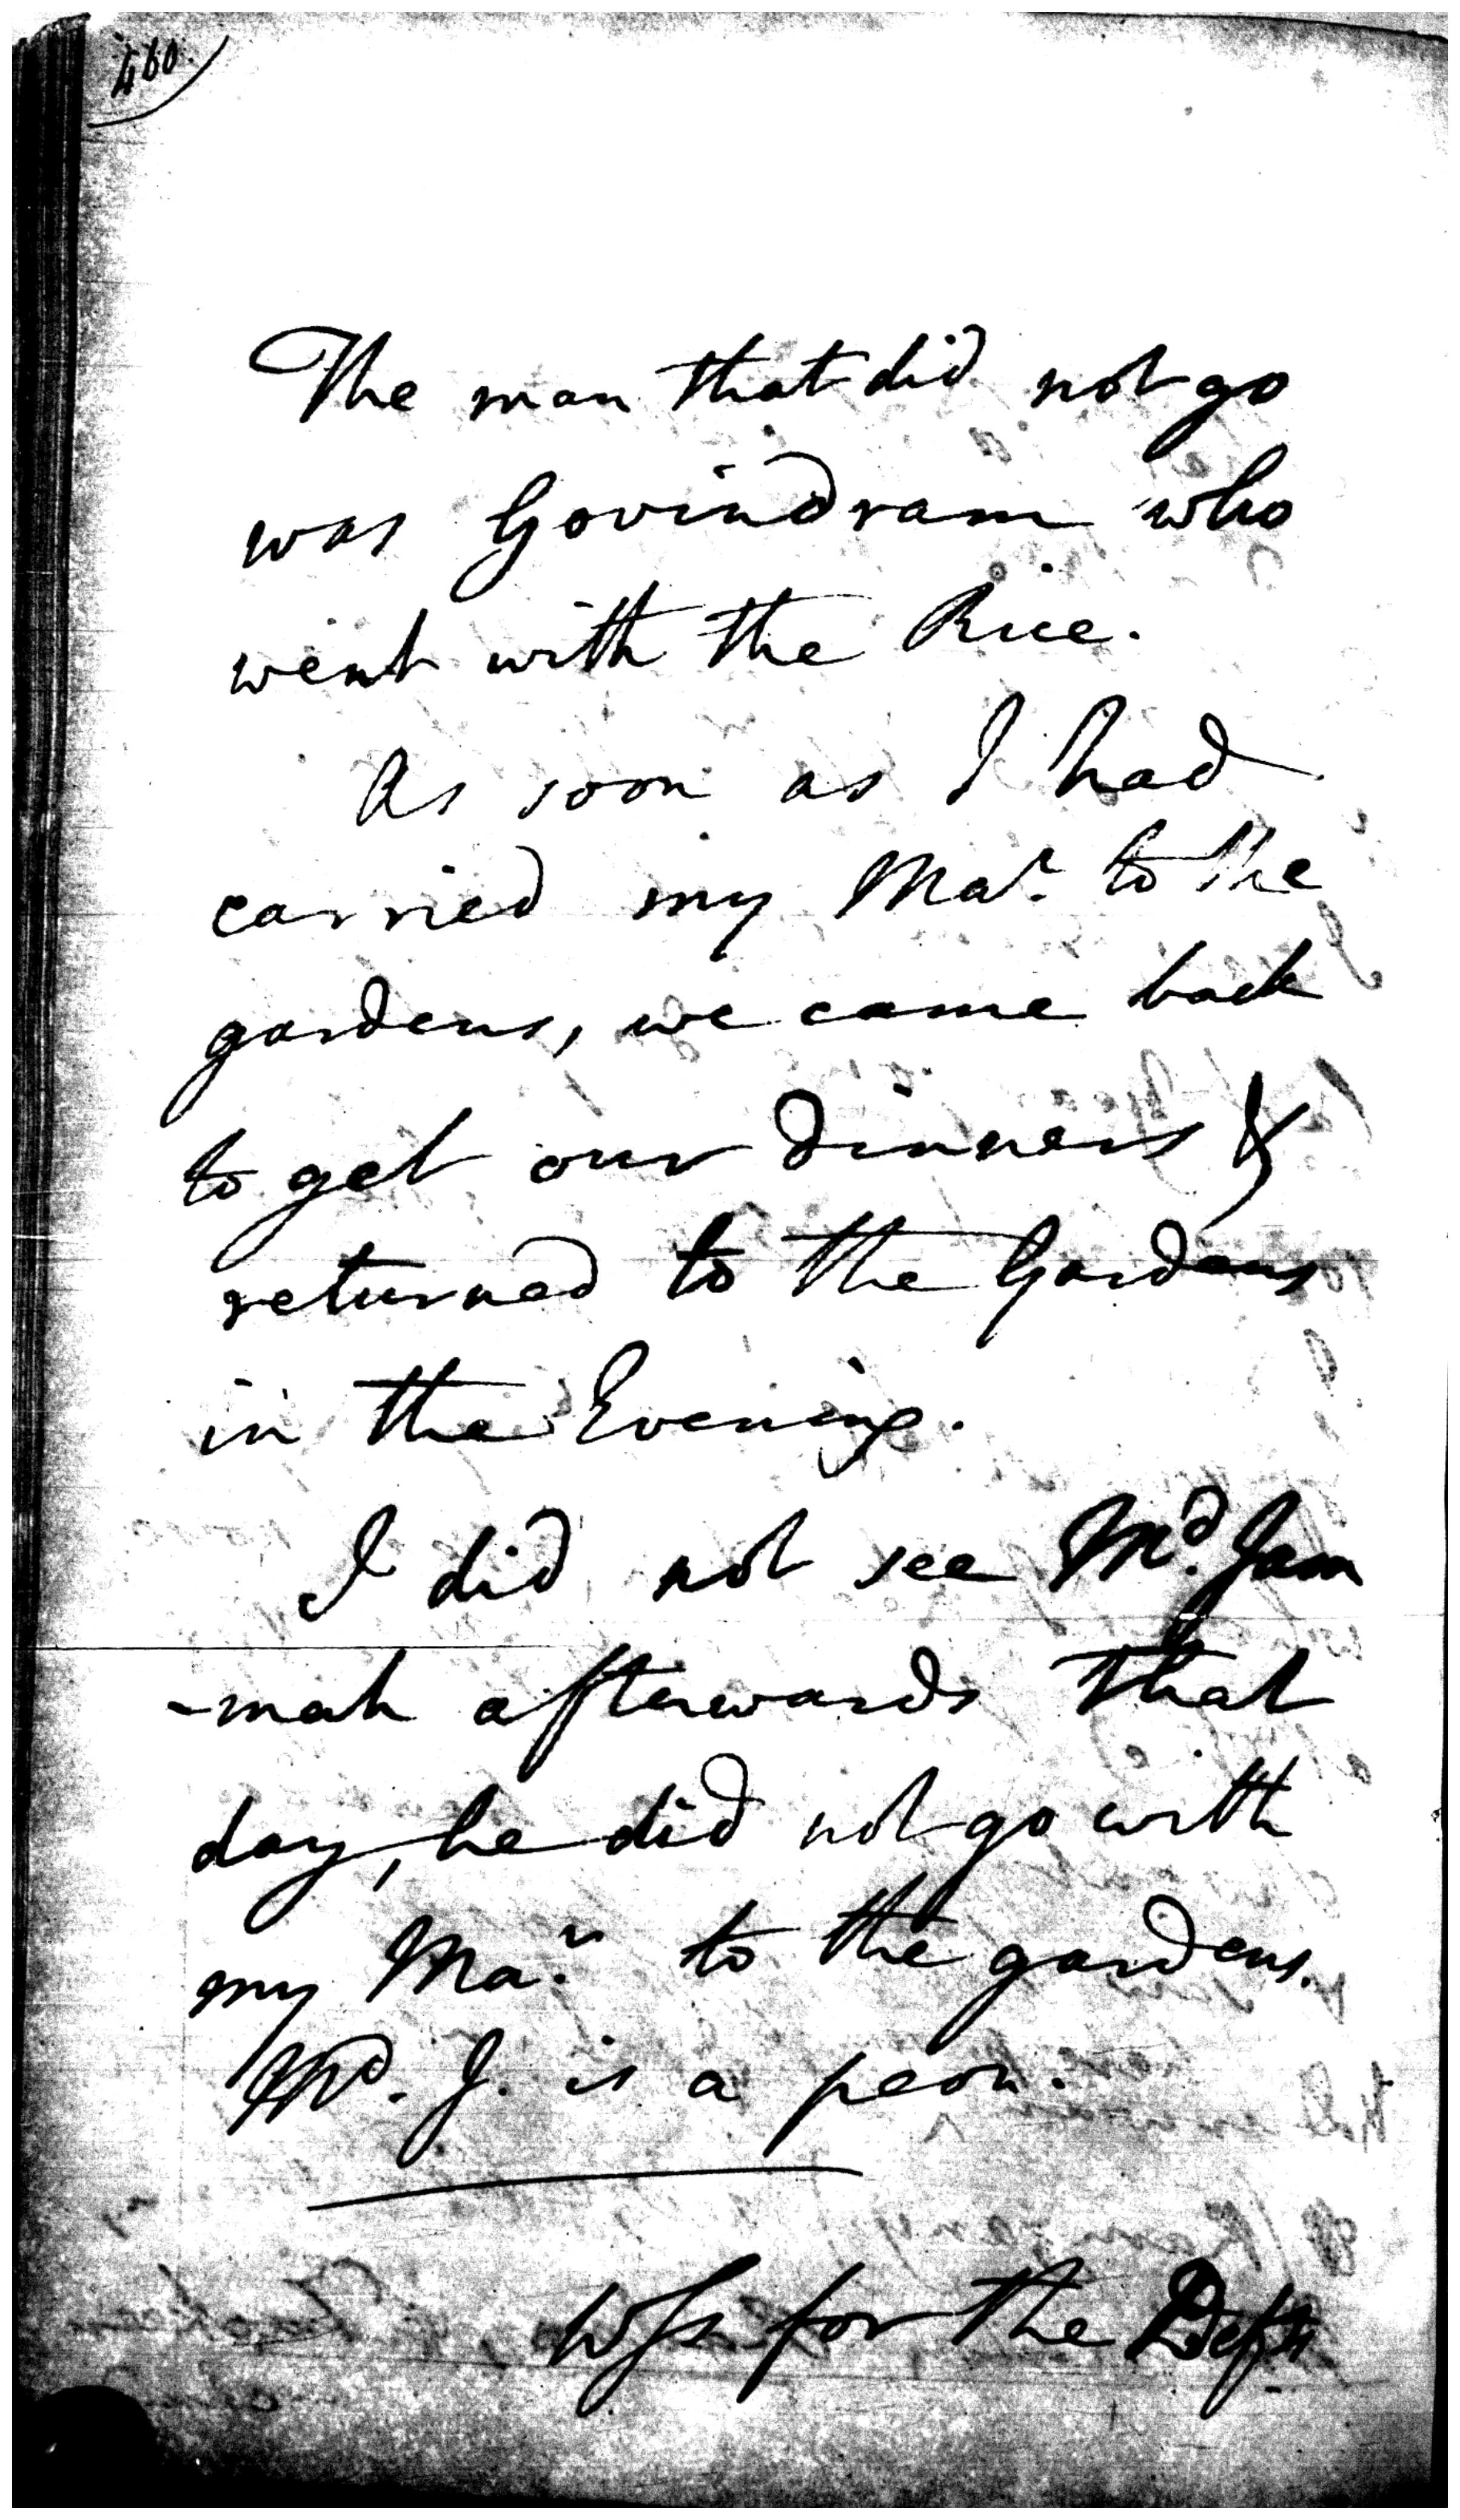 460.
The man that did not go
was Govindram who
went with the Rice.
As soon as I had
carried my Mar. to the
gardens, we came back
to get our dinners &
returned to the Gardens
in the Evening.
I did not see Md. Jam
-mah afterwards that
day, he did not go with
my Mar. to the gardens.
Md. J. is a peon.
for the Defts